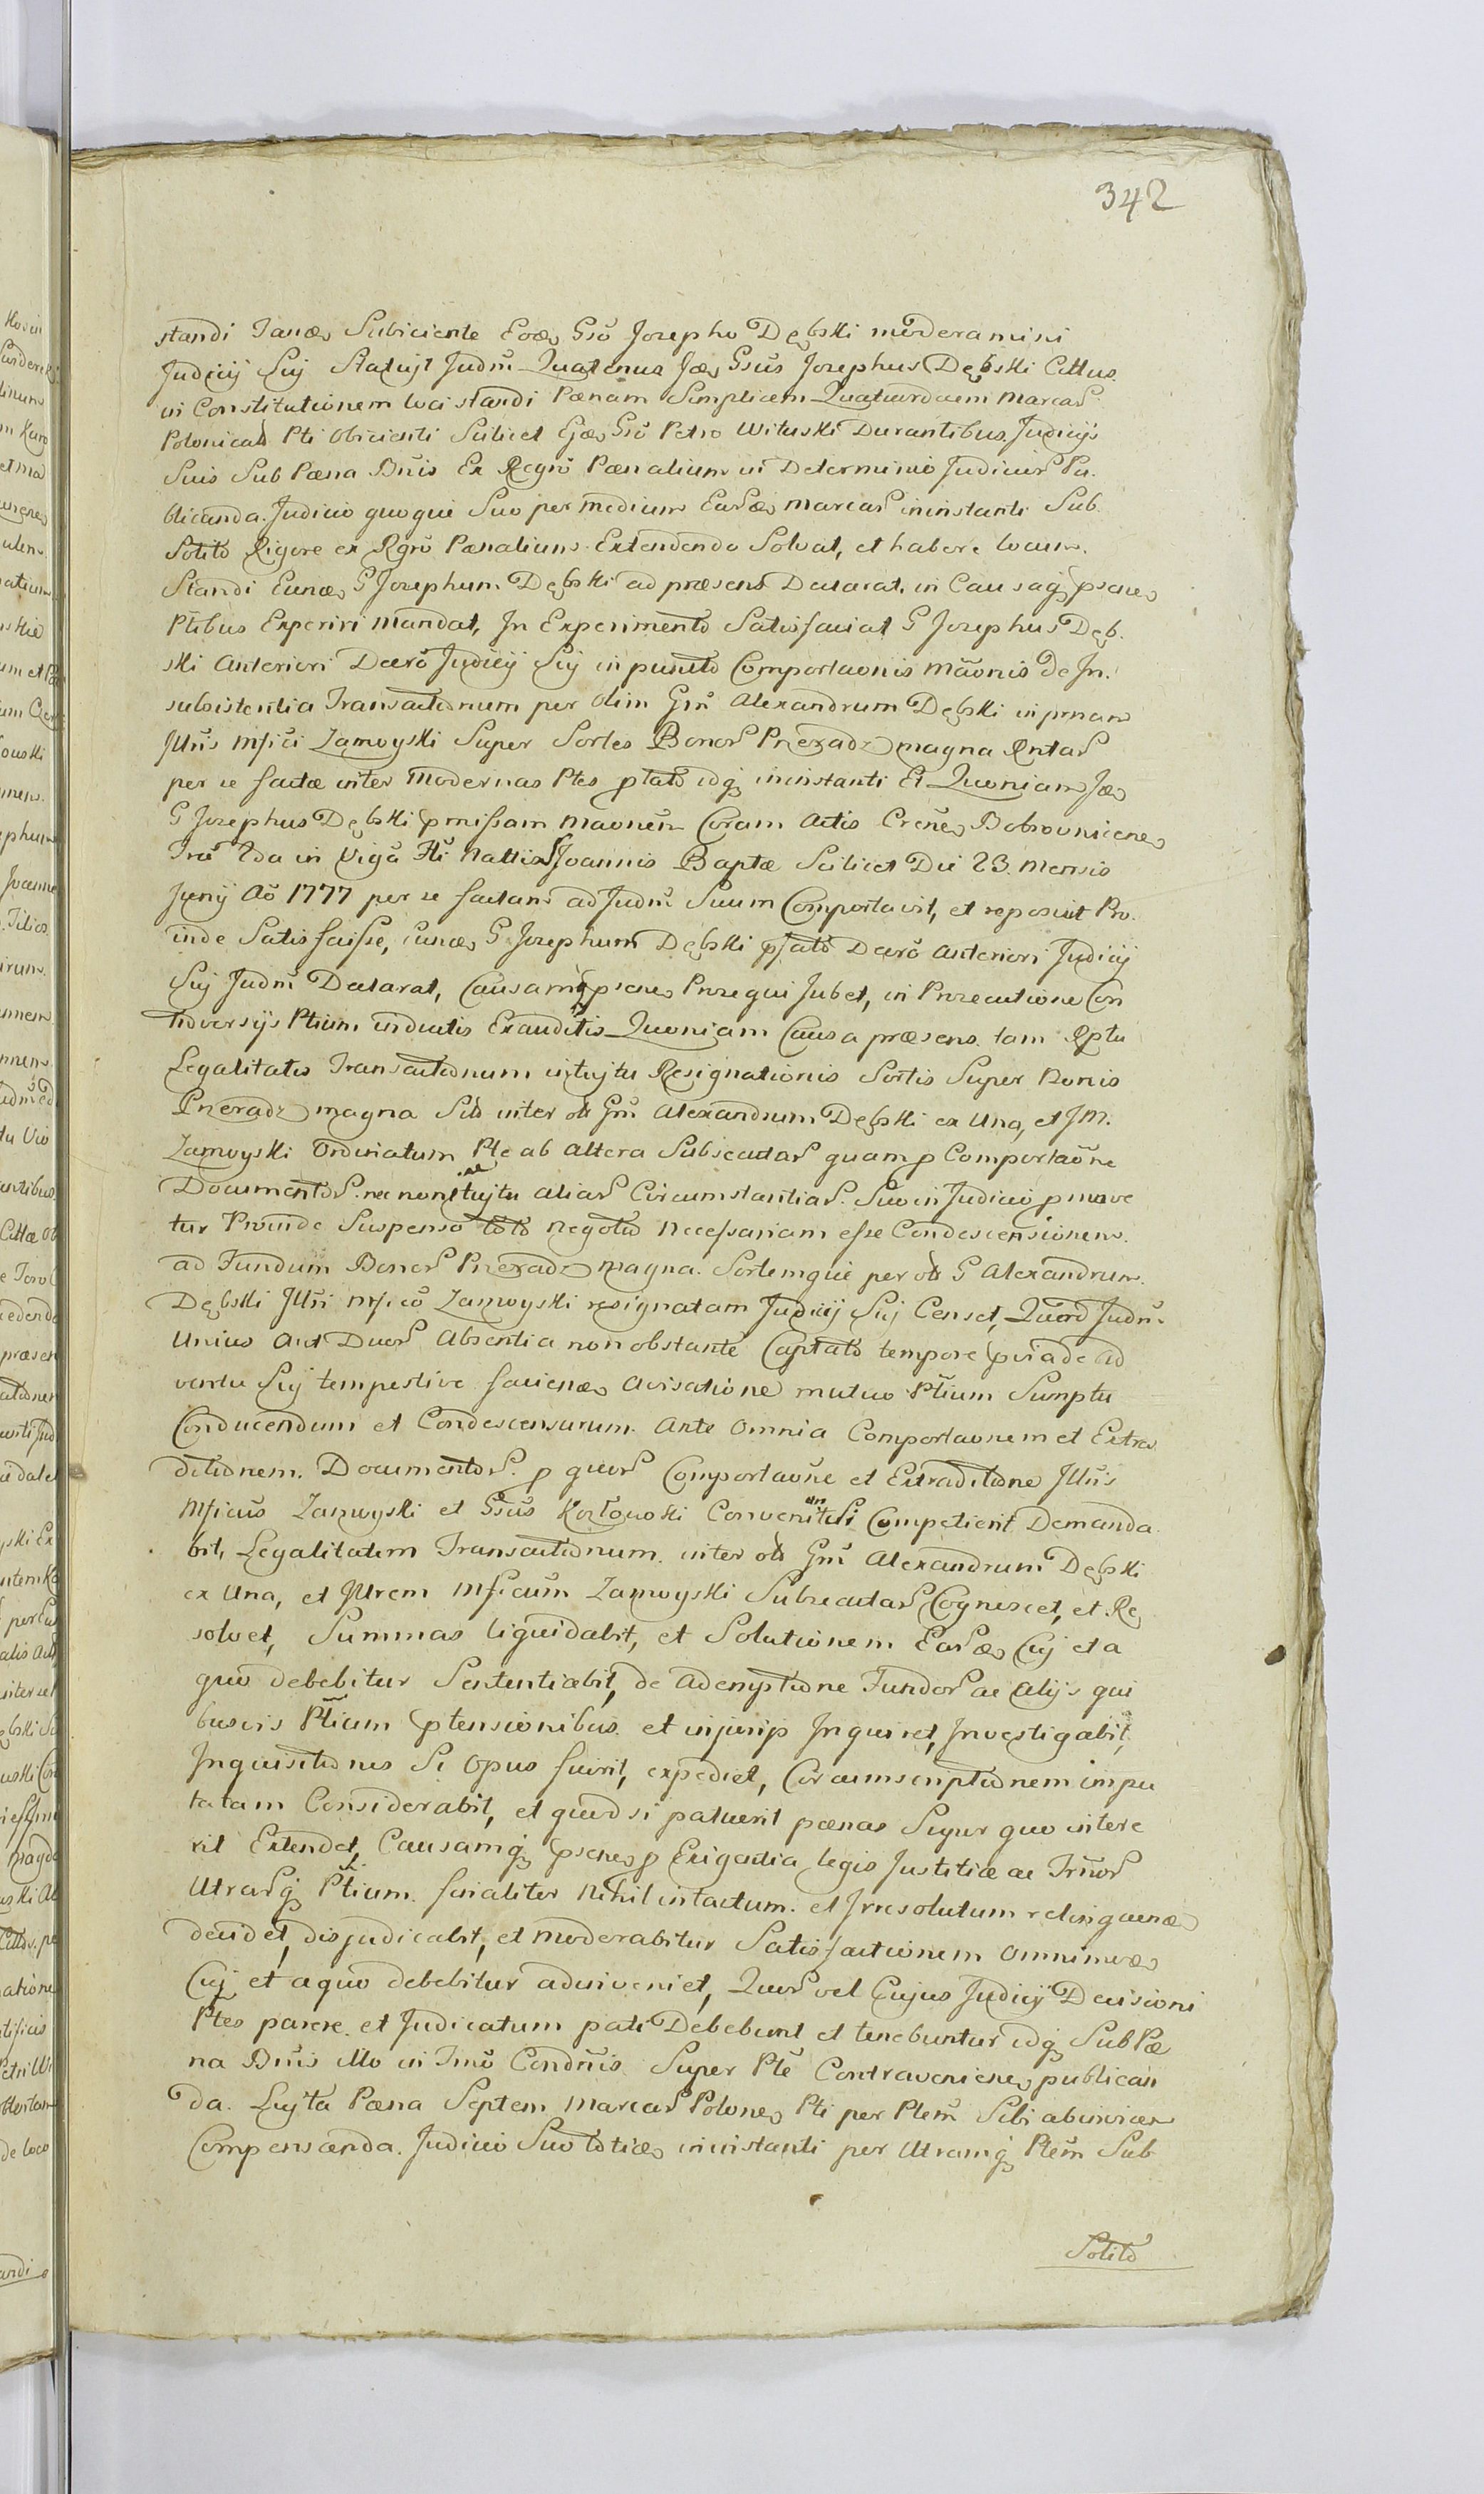 342
standi Tandem Subiciente Eodem Gso Josepho Dębski moderamini
Judicij Suj Statujt Judm Quatenus Idem Gsus Josephus Dębski Cittus
in Constitutionem loci standi Pænam Simplicem Quatuordecim Marcar
Polonical Pti Obicienti Scilicet Ejdem Gso Petro Wituski Durantibus Judicijs
Suis Sub Pæna Bnis Ex Regro Pænalium in Determinio Judicior Pu.
blicanda. Judicio quoque Suo per medium Earundem marcar ininstanti Sub
Solito Rigore ex Rgro Pænalium Extendendo Solvat, et habere locum
Standi Eundem G Josephum Dębski ad præsens Declarat, in Causaq psene
Ptibus Experiri Mandat, In Experimento Satisfaciat G Josephus Dęb.
ski Anteriori Decro Judicij Suj in puncto Comportaonis Maonis de In.
subsistentia Transactionum per Olim Gm Alexandrum Dębski in prnam
Jllris Mfici Zamoyski Super Sortes Bonor Pnieradz magna Rntar
per se factæ inter Modernas Ptes ptato idq ininstanti Et Quoniam Idem
G Josephus Dębski pmissam Maonem Coram Actis Crene Bobrovnicene
Fra 2da in Viga Fti Nattis S Joannis Baptæ Scilicet Die 23 Mensis
Junij Ao 1777 per se factam ad Judm Suum Comportavit, et reposuit Pro.
inde Satisfecisse, eundem G Josephum Dębski psato Decro Anteriori Judicij
Suj Judm Declarat, Causamq psene Prosequi Jubet, in Prosecutione Con
troversijs Ptium inductis Exauditis Quoniam Causa præsens tam Rptu
Legalitatis Transactionum intujtu Resignationis Sortis Super Bonis
Pnieradz magna Sito inter ol Gm Alexandrum Dębski ex Una, et JM.
Zamoyski Ordinatum Pte ab Altera Subsecutar quam p Comportaone
Documentor. nec non intujtu Aliar Circumstantiar Suo in Judicio pmove
tur Proinde Suspenso toto Negotio Necessariam esse Condescensionem
ad Fundum Bonor Pnieradz magna Sortemque per ol G Alexandrum
Dębski Jllri Mfico Zamoyski resignatam Judicij Suj Censet, Quod Judm
Unius Aut Duor Absentia non obstante Captato tempore pviade ad
ventu Suj tempestive faciendæ Avisatione mutuo Ptium Sumptu
Conducendum et Condescensurum Ante Omnia Comportaonem et Extra
ditionem Documentor. p quor Comportaone et Extraditione Jllris
Mficus Zamoyski et Gsus Kozłowski Convenienti Competierit Demanda
bit, Legalitatem Transactionum inter ol Gm Alexandrum Dębski
ex Una, et Jllrem Mficum Zamoyski Subsecutar Cognoscet, et Re
solvet, Summas liquidabit, et Solutionem Earundem Cuj et a
quo debebitur Sententiabit, de Ademptione Fundor ac Alijs qui
busvis Ptium ptensionibus et injurijs Inquiret, Investigabit,
Inquisitiones Si Opus fuerit, expediet, Circumscriptionem impu
tatam Considerabit, et quod si patuerit pænas Super quo intere
rit Extendet, Causamq psene p Exigentia legis Justitiæ ac Trnor
Utrarq Ptium finaliter Nihil intactum et Irresolutum relinquendo
decidet, disjudicabit, et Moderabitur Satisfactionem Omnimodam
Cuj et a quo debebitur adinveniet, Quor vel Cujus Judicij Decisioni
Ptes parere et Judicatum pati Debebunt et tenebuntur idq Sub Pæ
na Bnis Mo in Tmo Condnis Super Pte Contraveniene publican
da. Lujta Pæna Septem Marcar Polone Pti per Ptem Sibi abinvicem
Compensanda. Judicio Suo toties ininstanti per Utramq Ptem Sub
Solito